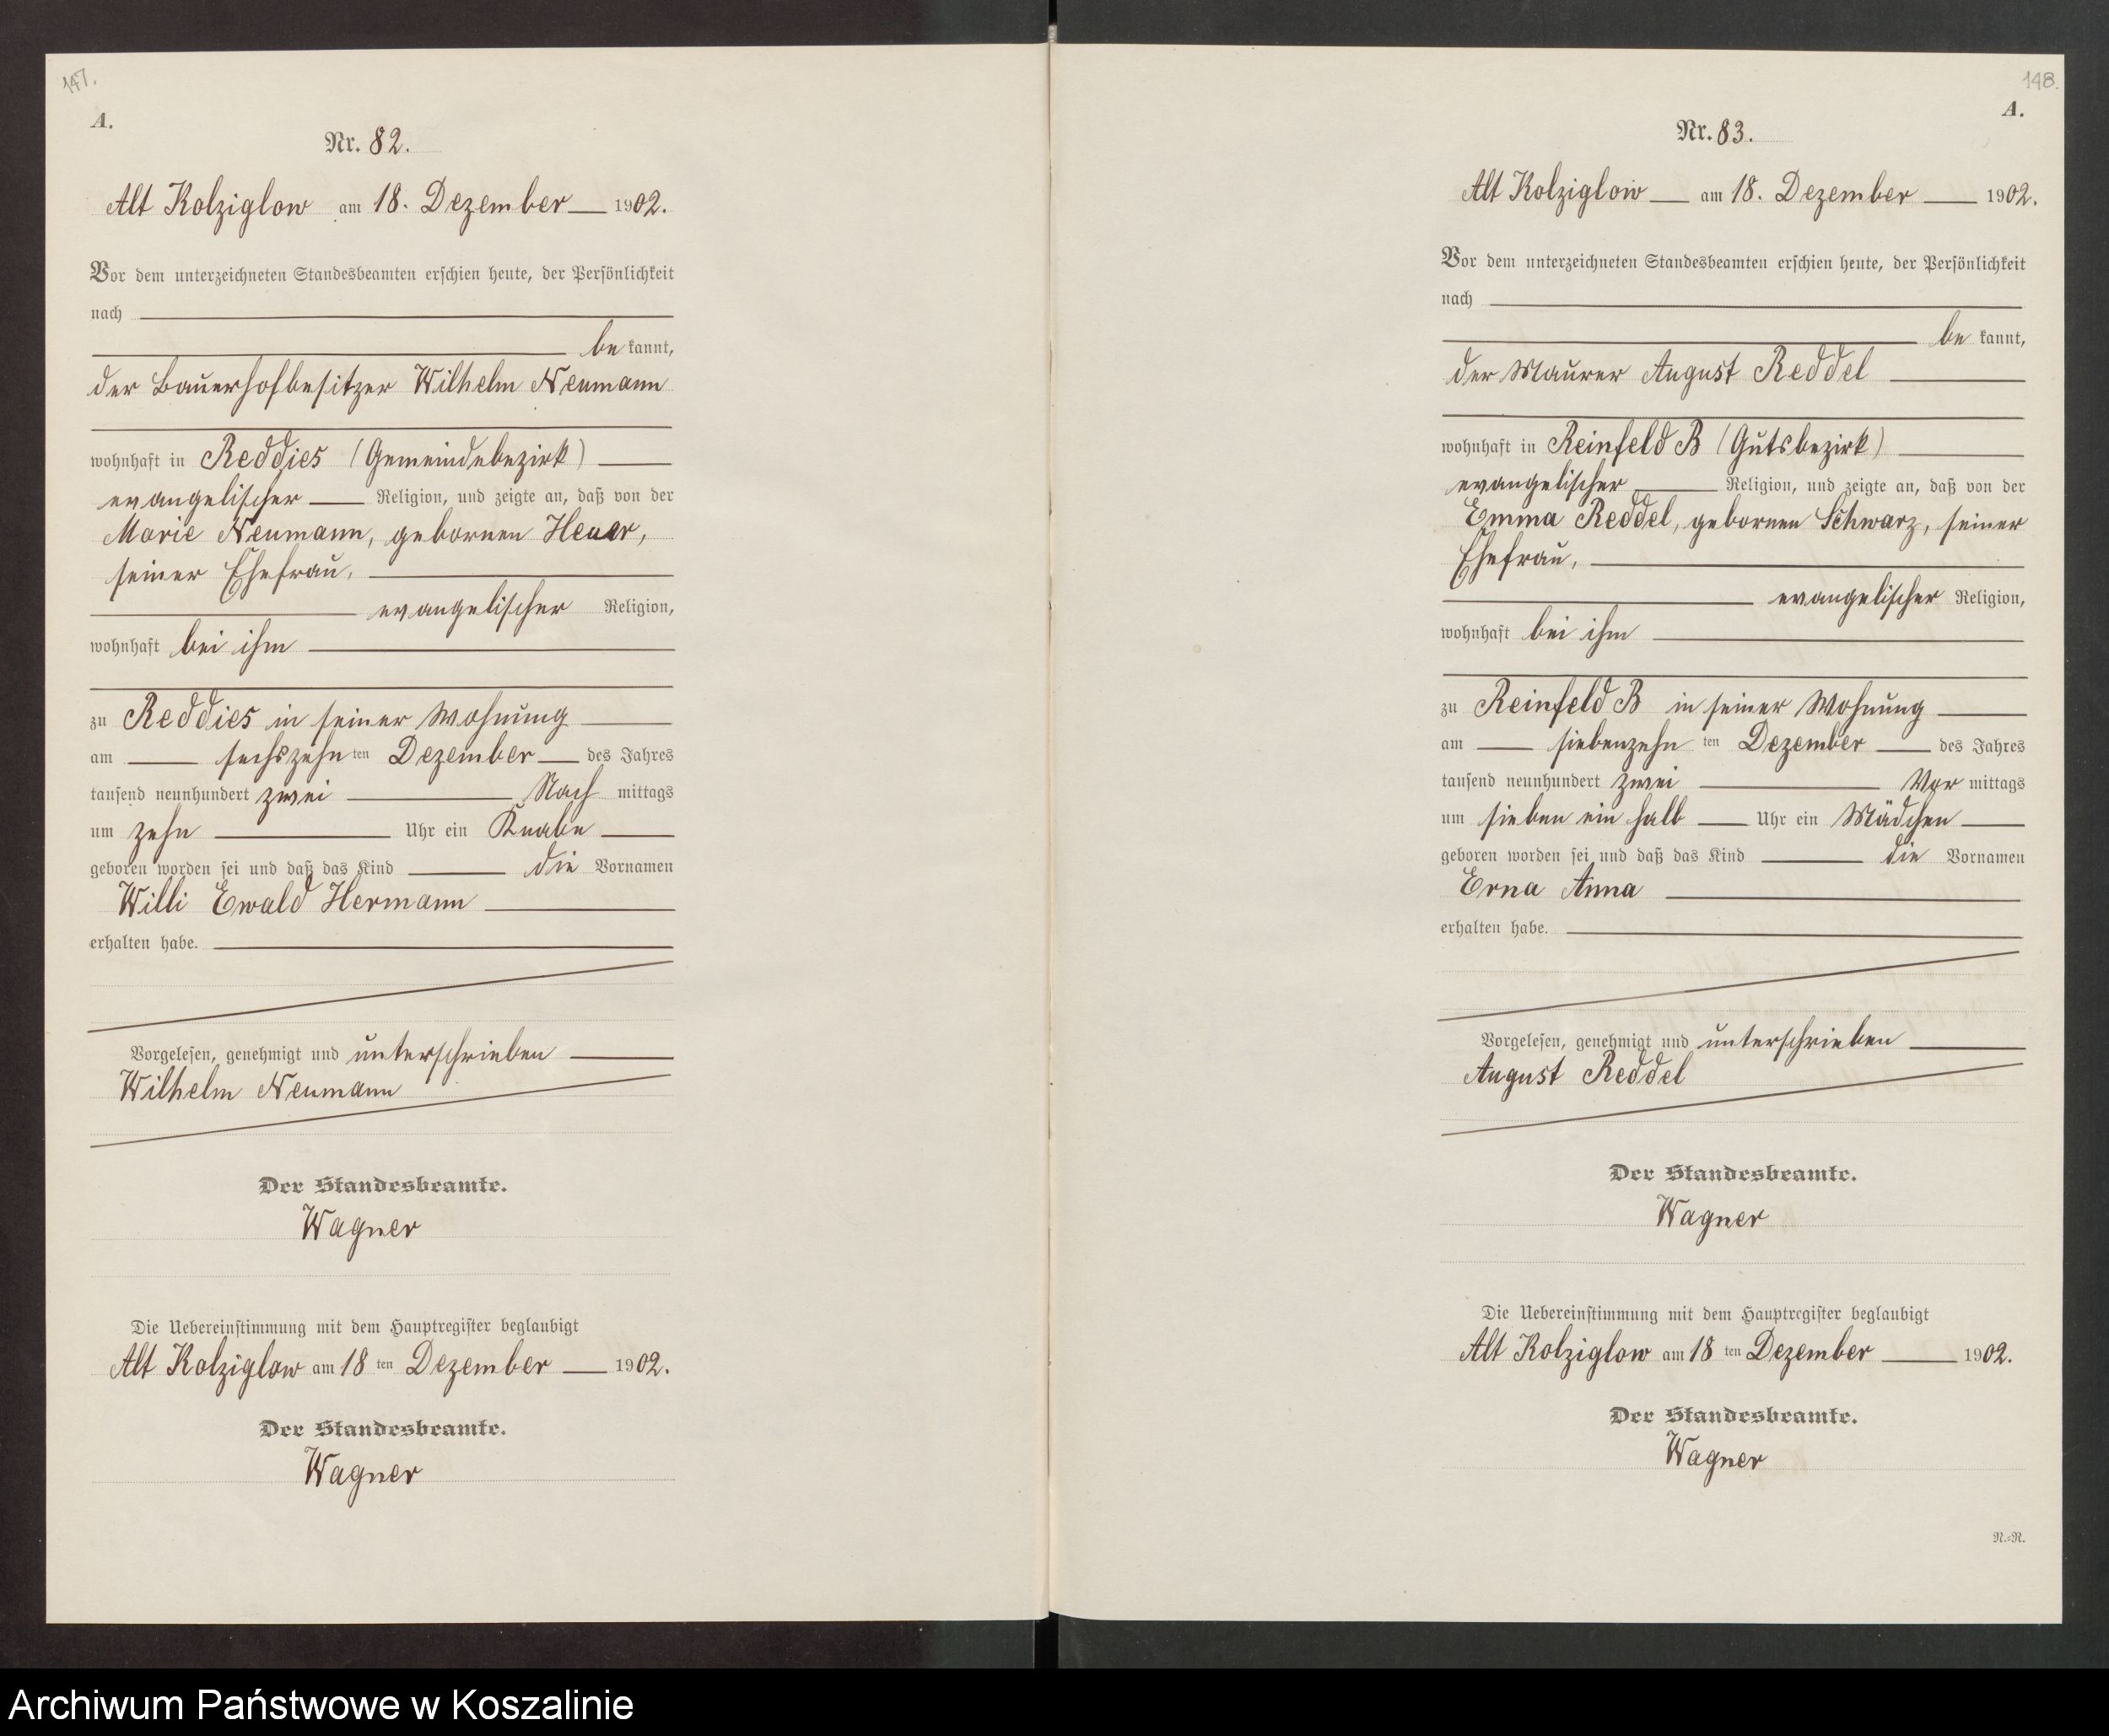 147.
A.
Nr. 82.
Alt Kolziglow am 18. Dezember 1902.
Vor dem unterzeichneten Standesbeamten erschien heute, der Persönlichkeit
nach
be kannt,
der Bauerhofbesitzer Wilhelm Neumann
wohnhaft in Reddies (Gemeindebezirk)
evangelischer Religion, und zeigte an, daß von der
Marie Neumann, gebornen Heuer,
seiner Ehefrau,
evangelischer Religion,
wohnhaft bei ihm
zu Reddies in seiner Wohnung
am sechszehn ten Dezember des Jahres
tausend neunhundert zwei Nach mittags
um zehn Uhr ein Knabe
geboren worden sei und daß das Kind die Vornamen
Willi Ewald Hermann
erhalten habe.
Vorgelesen, genehmigt und unterschrieben
Wilhelm Neumann
Der Standesbeamte.
Wagner
Die Uebereinstimmung mit dem Hauptregister beglaubigt
Alt Kolziglow am 18 ten Dezember 1902.
Der Standesbeamte.
Wagner
148.
A.
Nr. 83.
Alt Kolziglow am 18. Dezember 1902.
Vor dem unterzeichneten Standesbeamten erschien heute, der Persönlichkeit
nach
be kannt,
der Maurer August Reddel
wohnhaft in Reinfeld B (Gutsbezirk)
evangelischer Religion, und zeigte an, daß von der
Emma Reddel, gebornen Schwarz, seiner
Ehefrau,
evangelischer Religion,
wohnhaft bei ihm
zu Reinfeld B in seiner Wohnung
am siebenzehn ten Dezember des Jahres
tausend neunhundert zwei Vor mittags
um sieben ein halb Uhr ein Mädchen
geboren worden sei und daß das Kind die Vornamen
Erna Anna
erhalten habe.
Vorgelesen, genehmigt und unterschrieben
August Reddel
Der Standesbeamte.
Wagner
Die Uebereinstimmung mit dem Hauptregister beglaubigt
Alt Kolziglow am 18 ten Dezember 1902.
Der Standesbeamte.
Wagner
N.=N.
Archiwum Państwowe w Koszalinie